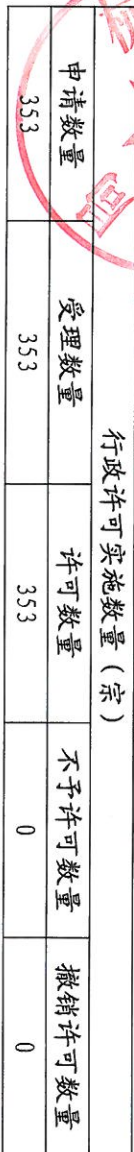 行政许可实施数量（宗）
申请数量 受理数量 许可数量 不予许可数量 撤销许可数量
353 353 353 0 0